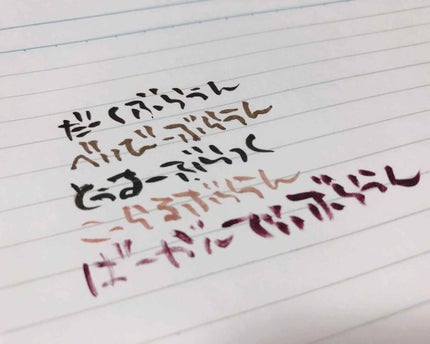 だーくぶらうん
べいびーぶらうん
とぅるーぶらっく
こーらるぶらうん
ばーがんでぃぶらうん